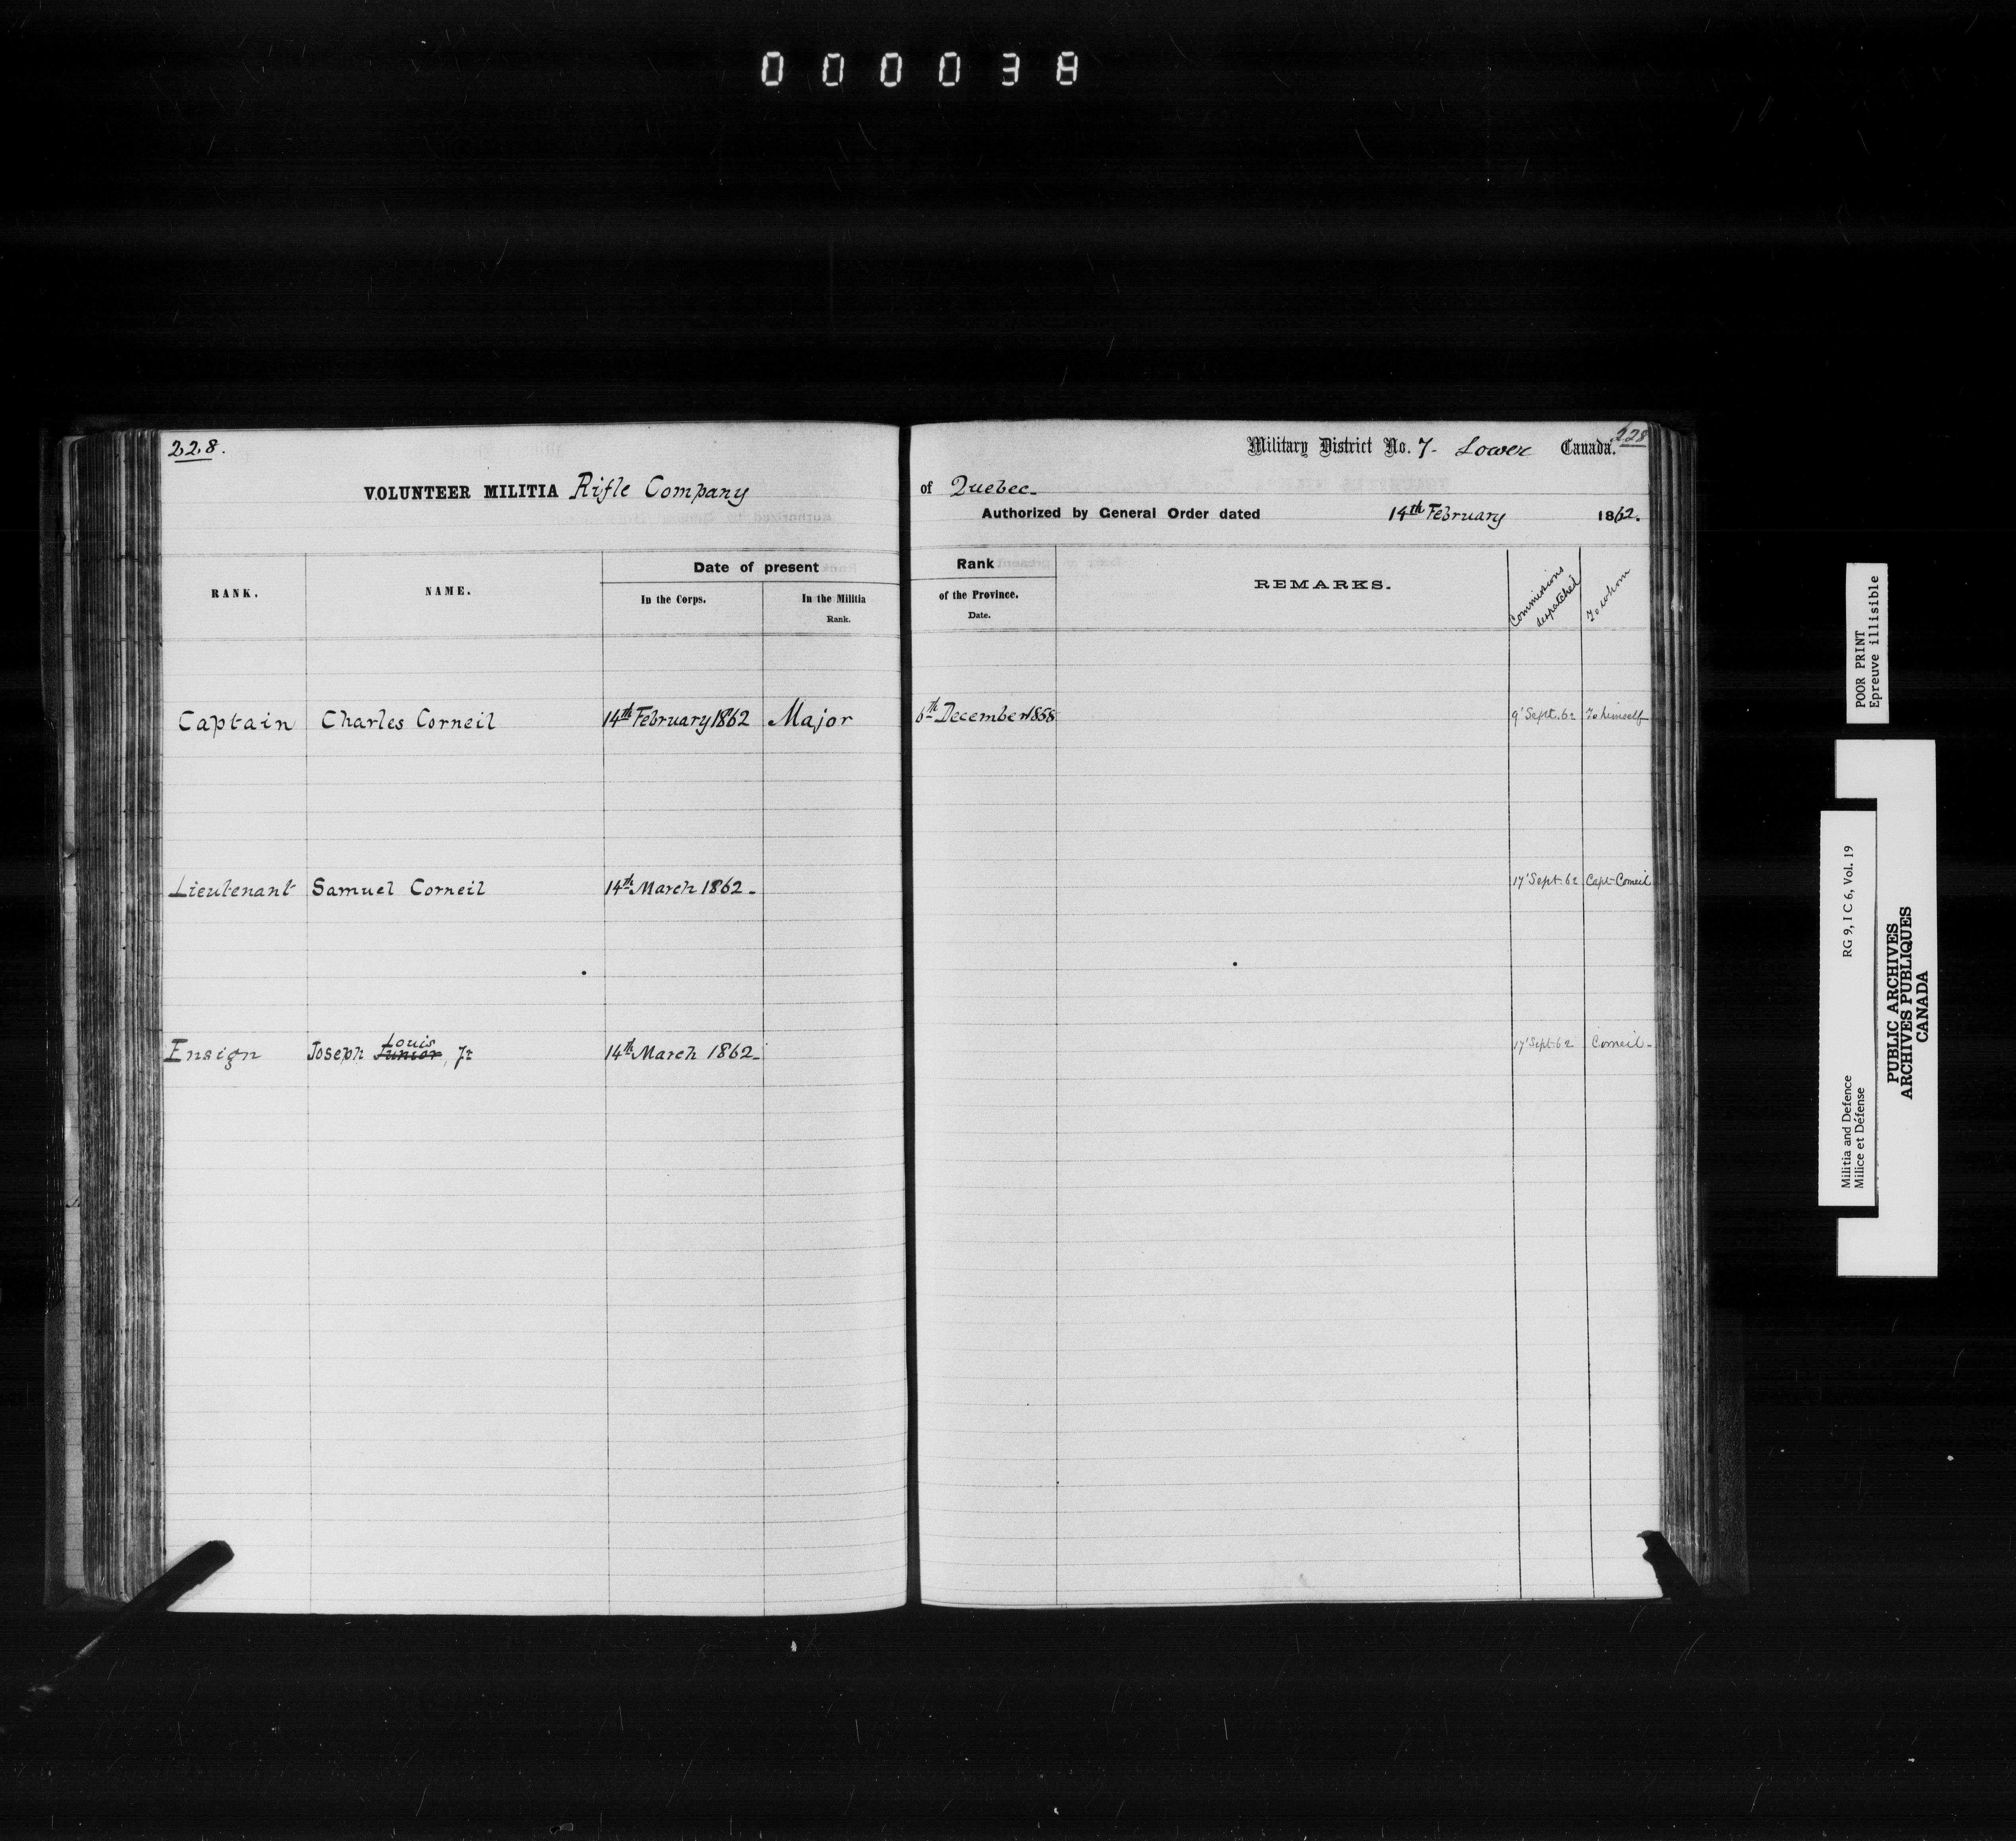 000038
228.
VOLUNTEER MILITIA Rifle Company
RANK.
NAME.
Date of present
In the Corps.
In the Militia
Rank.
Captain Charles Corneil 14th February 1862 Major
Lieutenant Samuel Corneil 14th March 1862.
Ensign Joseph Junior Louis, Jr 14th March 1862.
228
Military District No. 7. Lower Canada.
of Quebec.
Authorized by General Order dated 14th February 1862.
Rank
of the Province.
Date.
REMARKS.
Commissions despatched
To whom
6th December 1858 9' Sept. 62 To himself
17' Sept. 62 Capt. Corneil
17' Sept. 62 Corneil-
POOR PRINT
Epreuve illisible
RG 9, I C 6, Vol. 19
Militia and Defence
Milice et Défense
PUBLIC ARCHIVES
ARCHIVES PUBLIQUES
CANADA